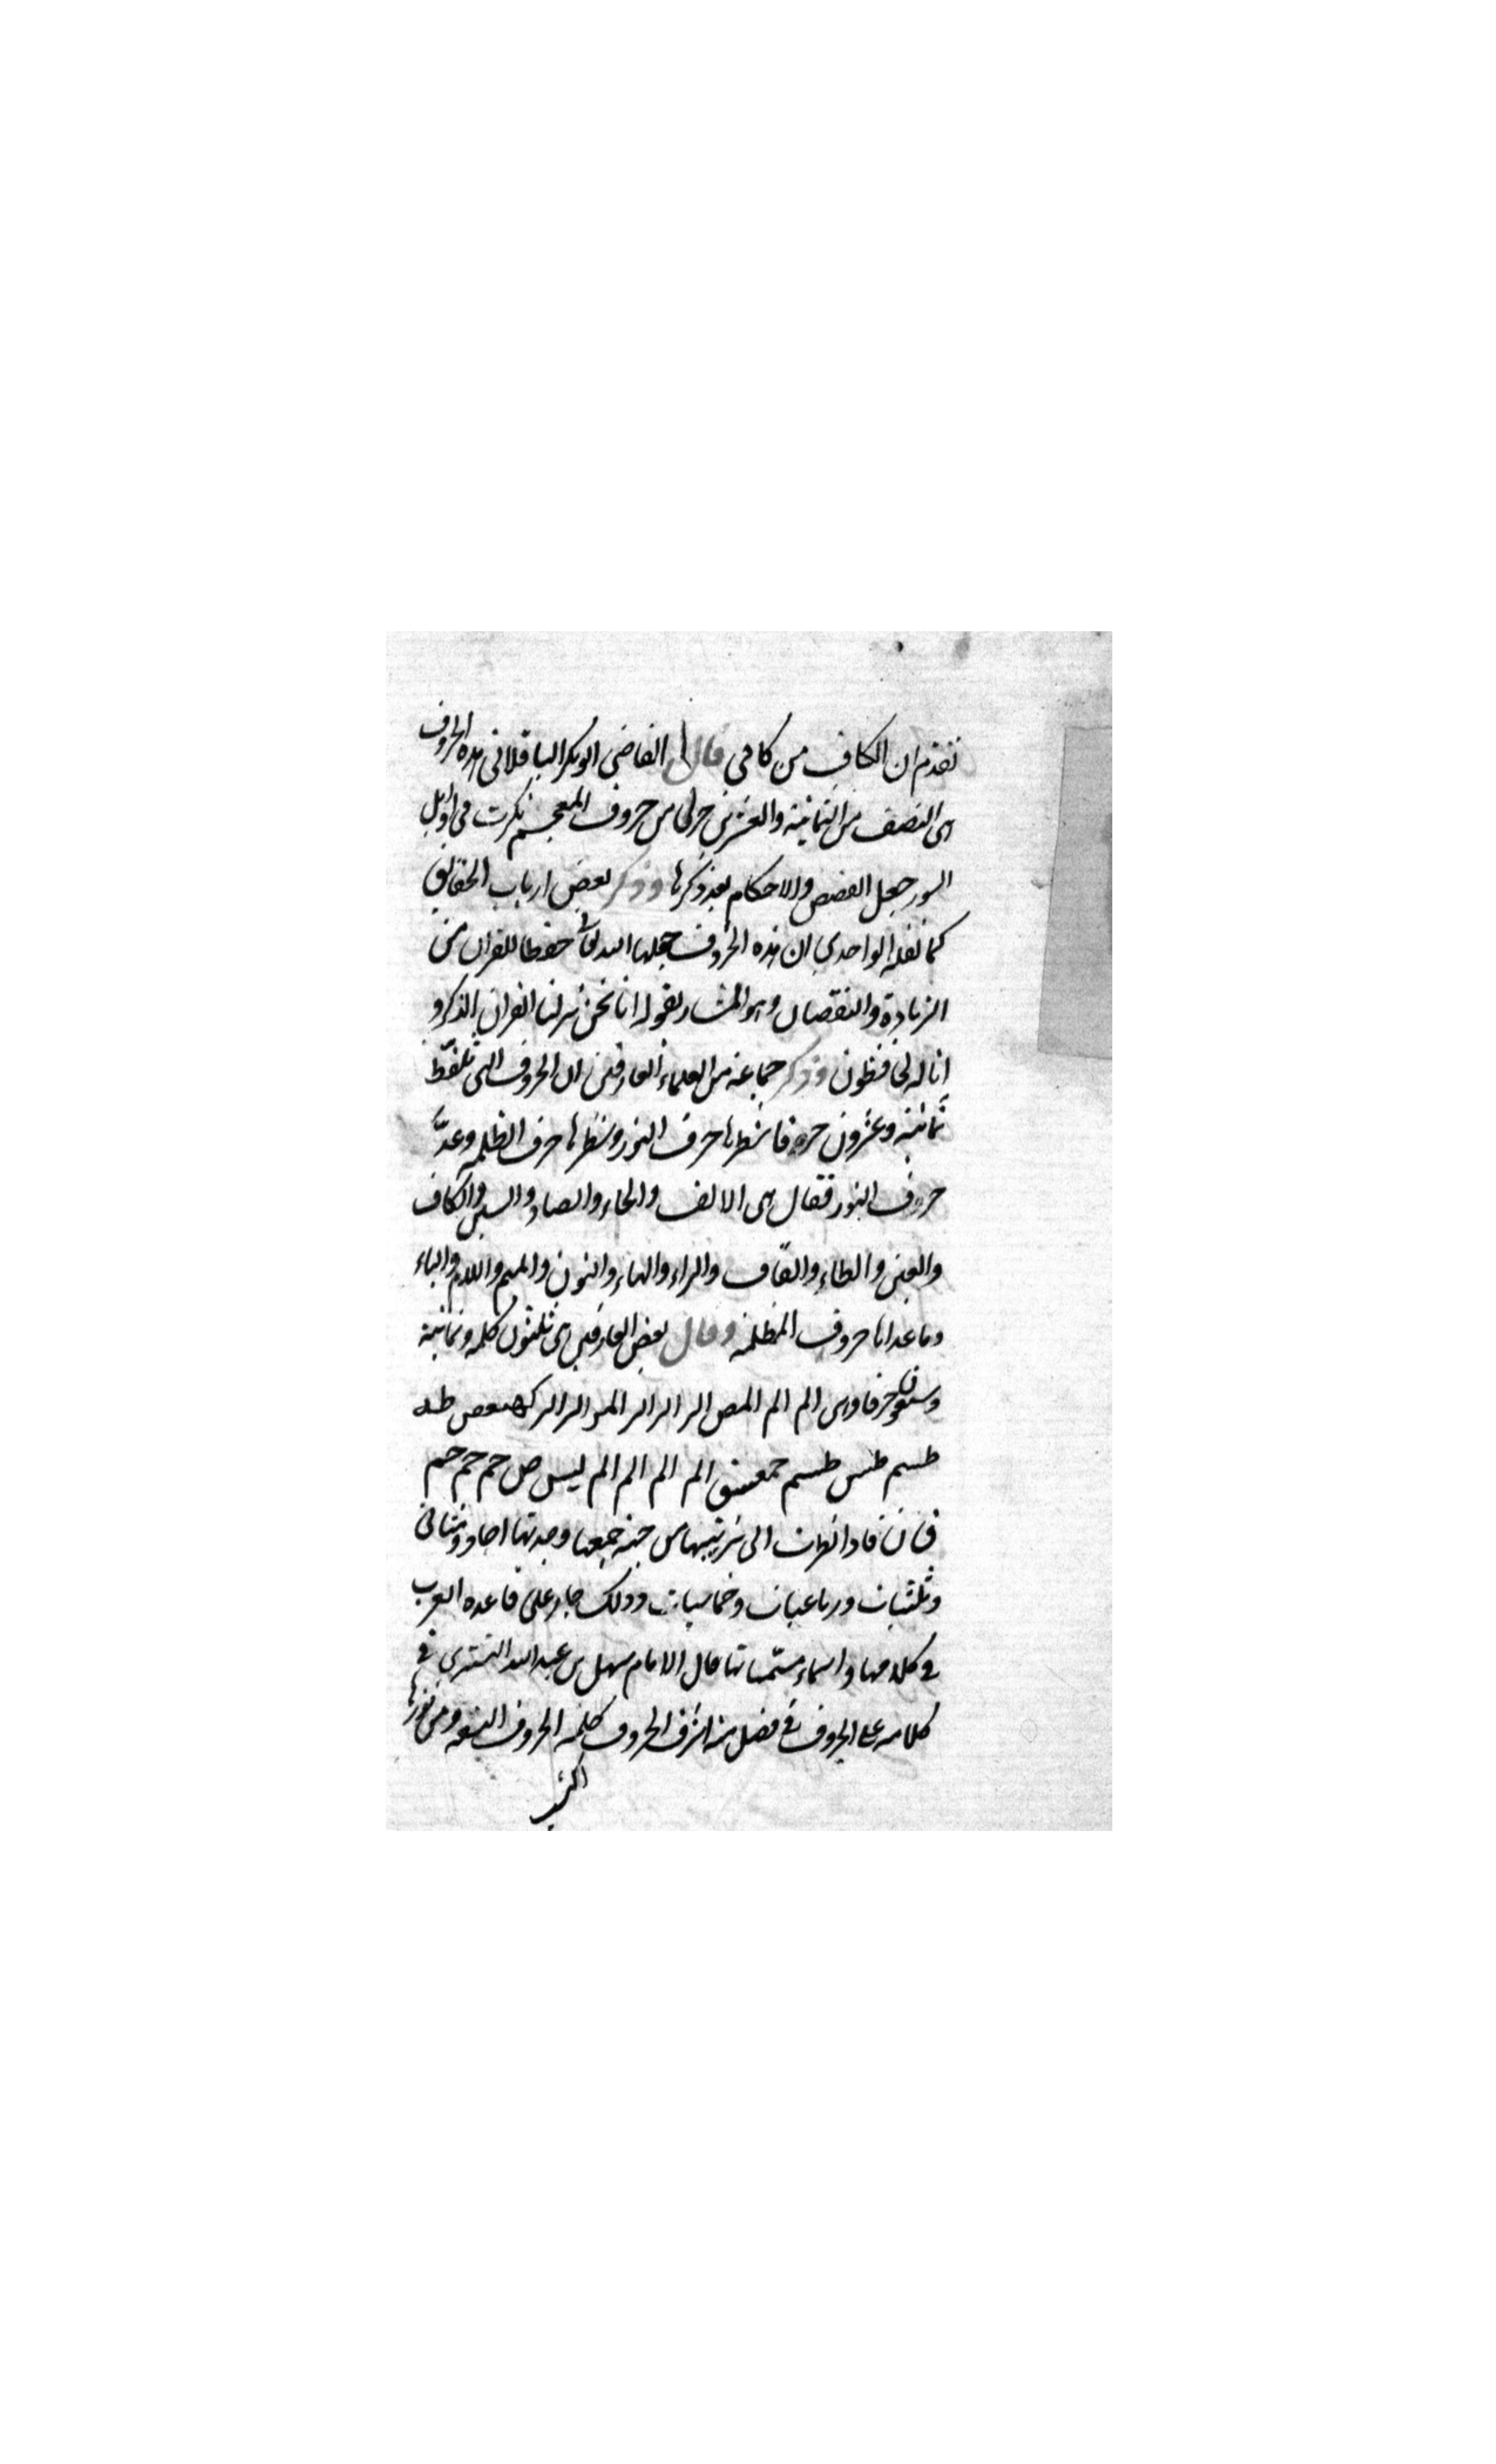 تقدم ان الكاف من كافى قال القاضى ابوبكر الباقلانى هذه الحروف
هى النصف من الثمانية والعشرين حرفا من حروف المعجم ذكرت فى اوايل
السور جعل القصص والاحكام بعد ذكرها وذكر بعض ارباب الحقايق
كما نقله الواحدي ان هذه الحروف جعلها الله تعالى حفظا للقران من
الزيادة والنقصان وهو المشار بقوله انا نحن نزلنا القران الذكر و
انا له لحافظون وذكر جماعة من العلماء العارفين ان الحروف التى تلفظ
ثمانية وعشرون حرفا شطرها حرف النور وشطرها حرف الظلمه وعدّ
حروف النور فقال هى الالف والحاء والصاد والسين والكاف
والعين والطاء والقاف والراء والهاء والنون والميم واللام والياء
وما عداها حروف المظلمه وقال بعض العارفين هى ثلثون كلمه وثمانية
وستون حرفا وهى الم الم المص الر الر الر المر الر الر كهيعص طه
طسم طس طسم حمعسق الم الم الم الم ليس ص حم حم حم
ق ن فاذا نظرت الى ترتيبها من جهة جمعها وجدتها احاد وثنائى
وثلثيات ورباعيات وخماسيات وذلك جار على قاعده العرب
فى كلامها واسماء مسمياتها قال الامام سهل بن عبد الله التسترى فى
كلامه على الحروف فى فضل اشرف الحروف كلمه الحروف ومن نورها